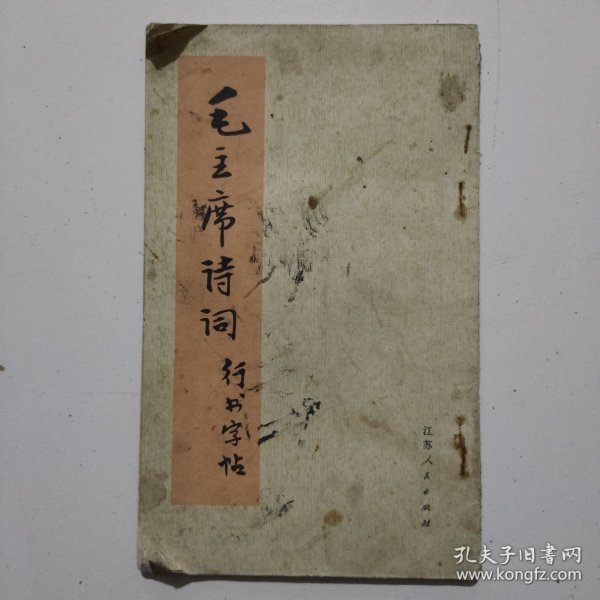 毛主席诗词
行书字帖
江苏人民出版社
孔夫子旧書网
www.kongfz.com